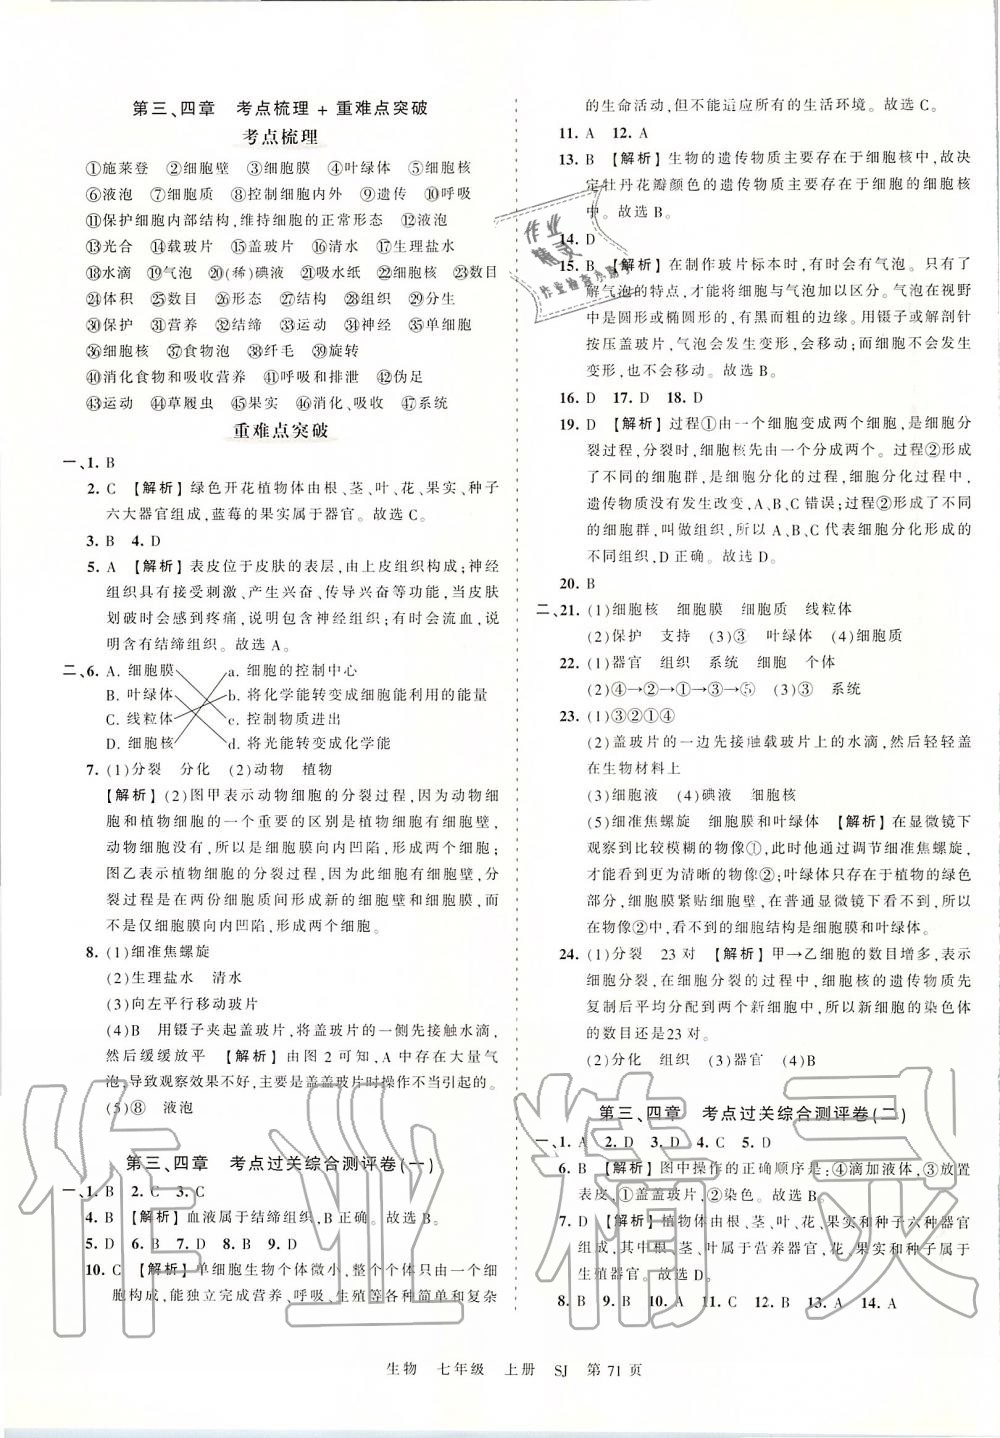 第三、四章　考点梳理 + 重难点突破
考点梳理
①施莱登　②细胞壁　③细胞膜　④叶绿体　⑤细胞核
⑥液泡　⑦细胞质　⑧控制细胞内外　⑨遗传　⑩呼吸
⑪保护细胞内部结构,维持细胞的正常形态　⑫液泡
⑬光合　⑭载玻片　⑮盖玻片　⑯清水　⑰生理盐水
⑱水滴　⑲气泡　⑳(稀)碘液　㉑吸水纸　㉒细胞核　㉓数目
㉔体积　㉕数目　㉖形态　㉗结构　㉘组织　㉙分生
㉚保护　㉛营养　㉜结缔　㉝运动　㉞神经　㉟单细胞
㊱细胞核　㊲食物泡　㊳纤毛　㊴旋转
㊵消化食物和吸收营养　㊶呼吸和排泄　㊷伪足
㊸运动　㊹草履虫　㊺果实　㊻消化、吸收　㊼系统
重难点突破
一、1. B
2. C　【解析】绿色开花植物体由根、茎、叶、花、果实、种子
六大器官组成,蓝莓的果实属于器官。故选 C。
3. B　4. D
5. A　【解析】表皮位于皮肤的表层,由上皮组织构成;神经
组织具有接受刺激、产生兴奋、传导兴奋等功能,当皮肤
划破时会感到疼痛,说明含有神经组织;有时会流血,说
明含有结缔组织。故选 A。
二、6. A. 细胞膜　a. 细胞的控制中心
B. 叶绿体　b. 将化学能转变成细胞能利用的能量
C. 线粒体　c. 控制物质进出
D. 细胞核　d. 将光能转变成化学能
7. (1)分裂　分化　(2)动物　植物
【解析】(2)图甲表示动物细胞的分裂过程,因为动物细
胞和植物细胞的一个重要的区别是植物细胞有细胞壁,
动物细胞没有,所以是细胞膜向内凹陷,形成两个细胞;
图乙表示植物细胞的分裂过程,因为植物细胞有细胞壁,分
裂过程是在两份细胞质间形成新的细胞壁和细胞膜,而
不是仅细胞膜向内凹陷,形成两个细胞。
8. (1)细准焦螺旋
(2)生理盐水　清水
(3)向左平行移动玻片
(4)B　用镊子夹起盖玻片,将盖玻片的一侧先接触水滴,
然后缓缓放平　【解析】由图 2 可知,A 中存在大量气
泡,导致观察效果不好,主要是盖盖玻片时操作不当引起的。
(5)⑧　液泡
第三、四章　考点过关综合测评卷(一)
一、1. B　2. C　3. C
4. B　【解析】血液属于结缔组织,B 正确。故选 B。
5. D　6. B　7. B　8. B　9. D
10. C　【解析】单细胞生物个体微小,整个个体只由一个细
胞构成,能独立完成营养、呼吸、生殖等各种简单和复杂
的生命活动,但不能适应所有的生活环境。故选 C。
11. A　12. A
13. B　【解析】生物的遗传物质主要存在于细胞核中,故决
定牡丹花瓣颜色的遗传物质主要存在于细胞的细胞核
中。故选 B。
14. D
15. B　【解析】在制作玻片标本时,有时会有气泡。只有了
解气泡的特点,才能将细胞与气泡加以区分。气泡在视野
中是圆形或椭圆形的,有黑而粗的边缘。用镊子或解剖针
按压盖玻片,气泡会发生变形,会移动;而细胞不会发生
变形,也不会移动。故选 B。
16. D　17. D　18. D
19. D　【解析】过程①由一个细胞变成两个细胞,是细胞分
裂过程,分裂时,细胞核先由一个分成两个。过程②形成
了不同的细胞群,是细胞分化的过程,细胞分化过程中,
遗传物质没有发生改变,A、B、C 错误;过程②形成了不同
的细胞群,叫做组织,所以 A、B、C 代表细胞分化形成的
不同组织,D 正确。故选 D。
20. B
二、21. (1)细胞核　细胞膜　细胞质　线粒体
(2)保护　支持　(3)③　叶绿体　(4)细胞质
22. (1)器官　组织　系统　细胞　个体
(2)④→②→①→③→⑤　(3)③　系统
23. (1)③②①④
(2)盖玻片的一边先接触载玻片上的水滴,然后轻轻盖
在生物材料上
(3)细胞液　(4)碘液　细胞核
(5)细准焦螺旋　细胞膜和叶绿体　【解析】在显微镜下
观察到比较模糊的物像①,此时他通过调节细准焦螺旋,
才能看到更为清晰的物像②;叶绿体存在于植物的绿色
部分,细胞膜紧贴细胞壁,在普通显微镜下看不到,所以
在物像②中,看不到的细胞结构是细胞膜和叶绿体。
24. (1)分裂　23 对　【解析】甲→乙细胞的数目增多,表示
细胞分裂,在细胞分裂的过程中,细胞核的遗传物质先
复制后平均分配到两个新细胞中,所以新细胞的染色体
的数目还是23 对。
(2)分化　组织　(3)器官　(4)B
第三、四章　考点过关综合测评卷(二)
一、1. A　2. D　3. D　4. C　5. D
6. B　【解析】图中操作的正确顺序是:④滴加液体,③放置
表皮,①盖盖玻片,②染色。故选 B。
7. D　【解析】植物体由根、茎、叶、花、果实和种子六种器官
组成。其中根、茎、叶属于营养器官,花、果实和种子属于
生殖器官。故选 D。
8. B　9. B　10. A　11. C　12. B　13. A　14. A
生物　七年级　上册　SJ　第 71 页
作业精灵
作业
精灵